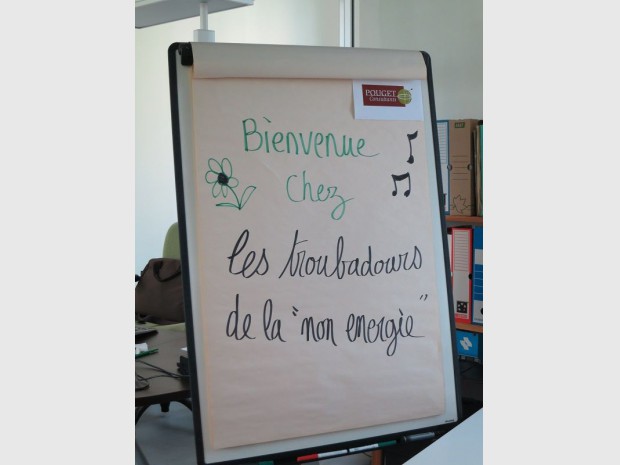 POUGET
Consultants
Bienvenue
chez
les troubadours
de la "non energie"